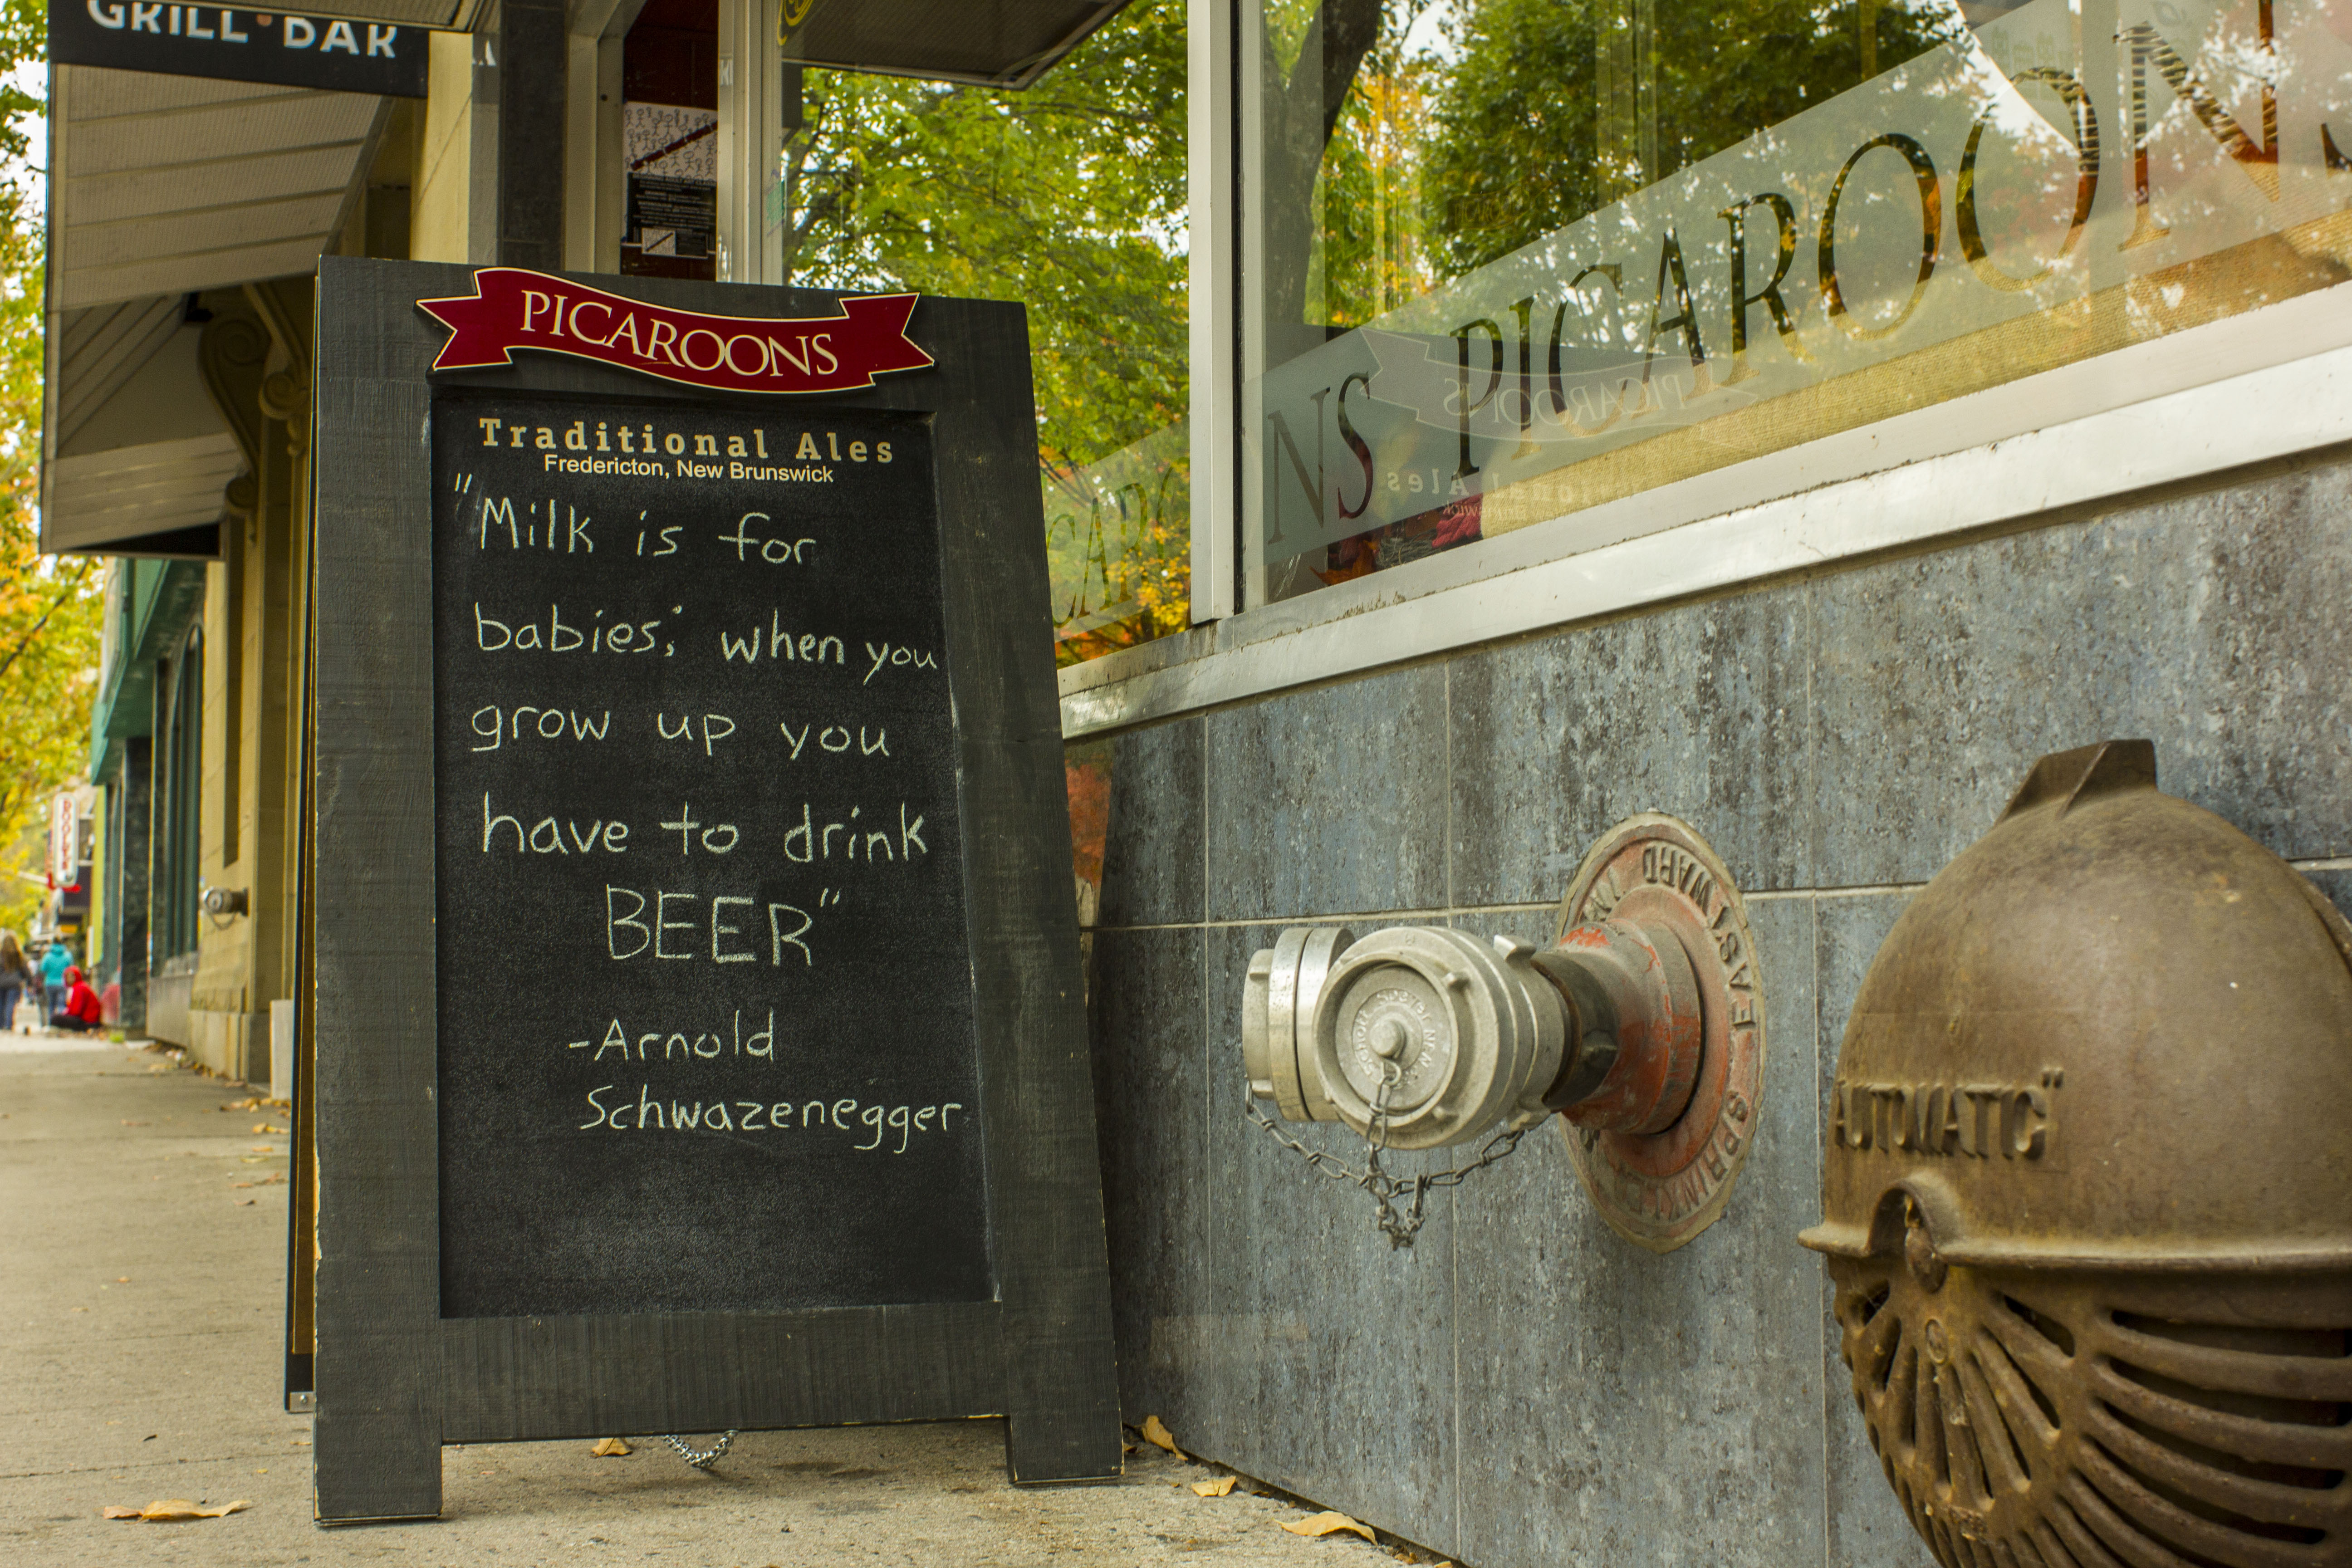 GRILL · BAR
PICAROONS
Traditional Ales
Fredericton, New Brunswick
"Milk is for
babies; when you
grow up you
have to drink
BEER"
-Arnold
Schwazenegger
NS PICAROON
PICAROONS
CARO
EASTWARD IN
SPRINKLER
"AUTOMATIC"
ROGERS